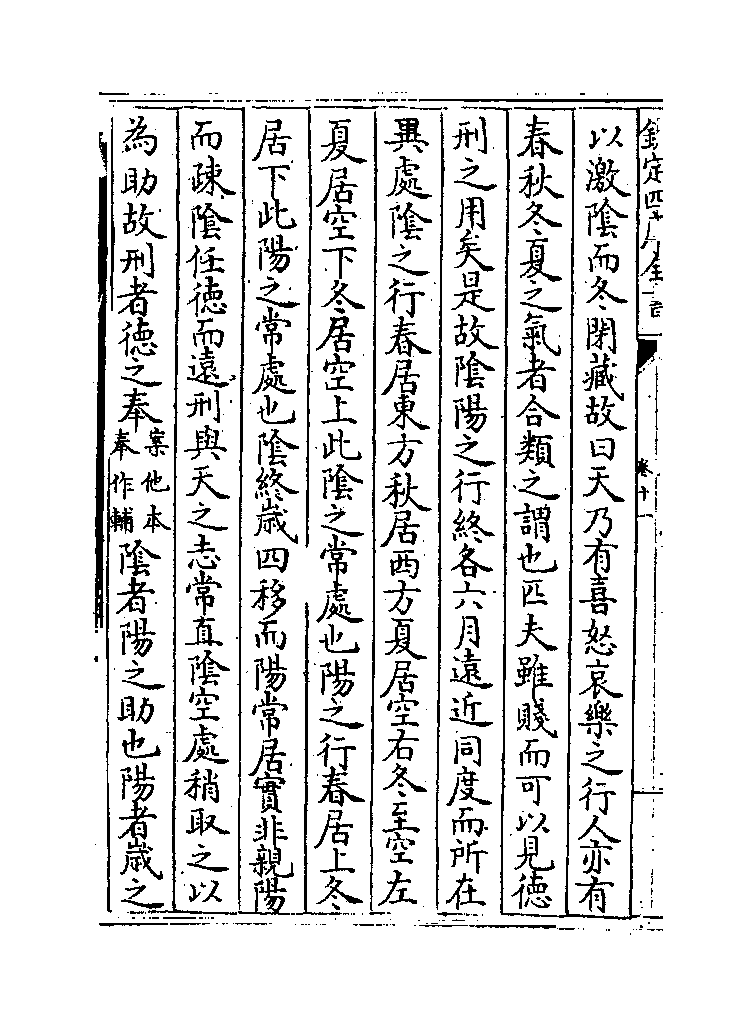 欽定四庫全書
卷十一
以激陰而冬閉藏故曰天乃有喜怒哀樂之行人亦有
春秋冬夏之氣者合類之謂也匹夫雖賤而可以見德
刑之用矣是故陰陽之行終各六月遠近同度而所在
異處陰之行春居東方秋居西方夏居空右冬至空左
夏居空下冬居空上此陰之常處也陽之行春居上冬
居下此陽之常處也陰終歲四移而陽常居實非親陽
而疎陰任德而遠刑與天之志常直陰空處稍取之以
為助故刑者德之奉案他本奉作輔陰者陽之助也陽者歲之